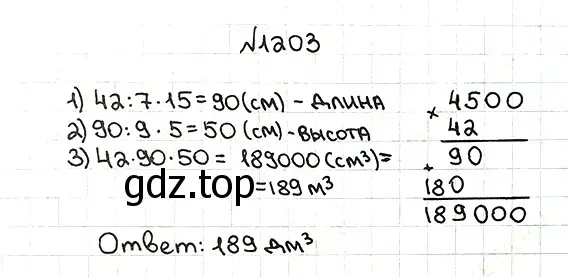 №1203
1) 42:7·15=90(см) - длина
2) 90:9·5=50(см) - высота
3) 42·90·50= 189000(см³)=
=189 м³
× 4500
42
+ 90
180
189000
gdz.top
Ответ: 189 дм³